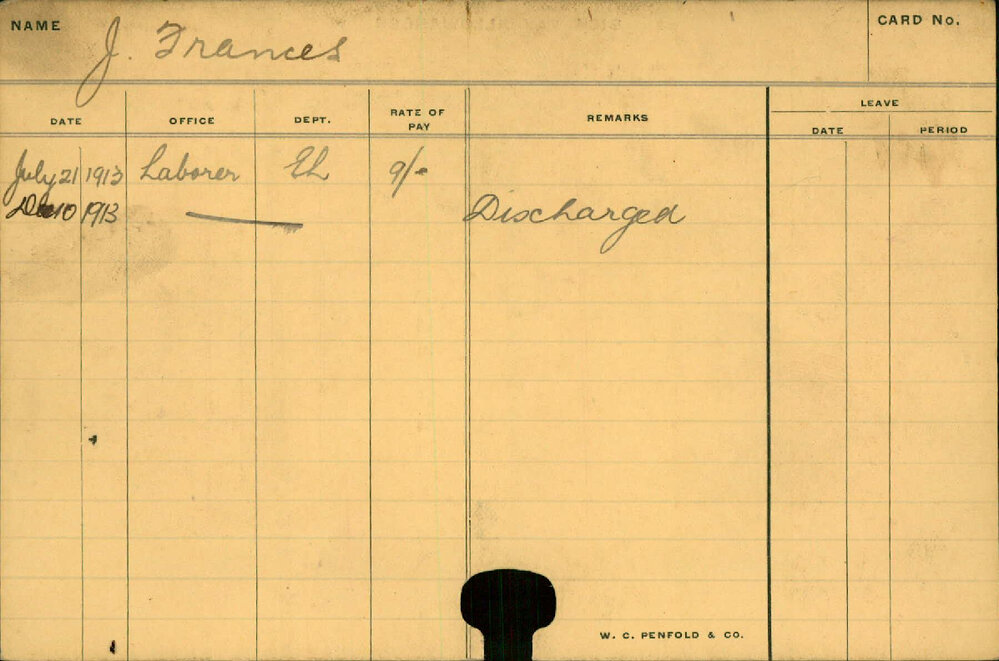 NAME
J. Frances
CARD No.
DATE OFFICE DEPT. RATE OF PAY REMARKS LEAVE
DATE PERIOD
July 21 1913 Laborer EL 9/-
Dec 10 1913 Discharged
W. C. PENFOLD & CO.